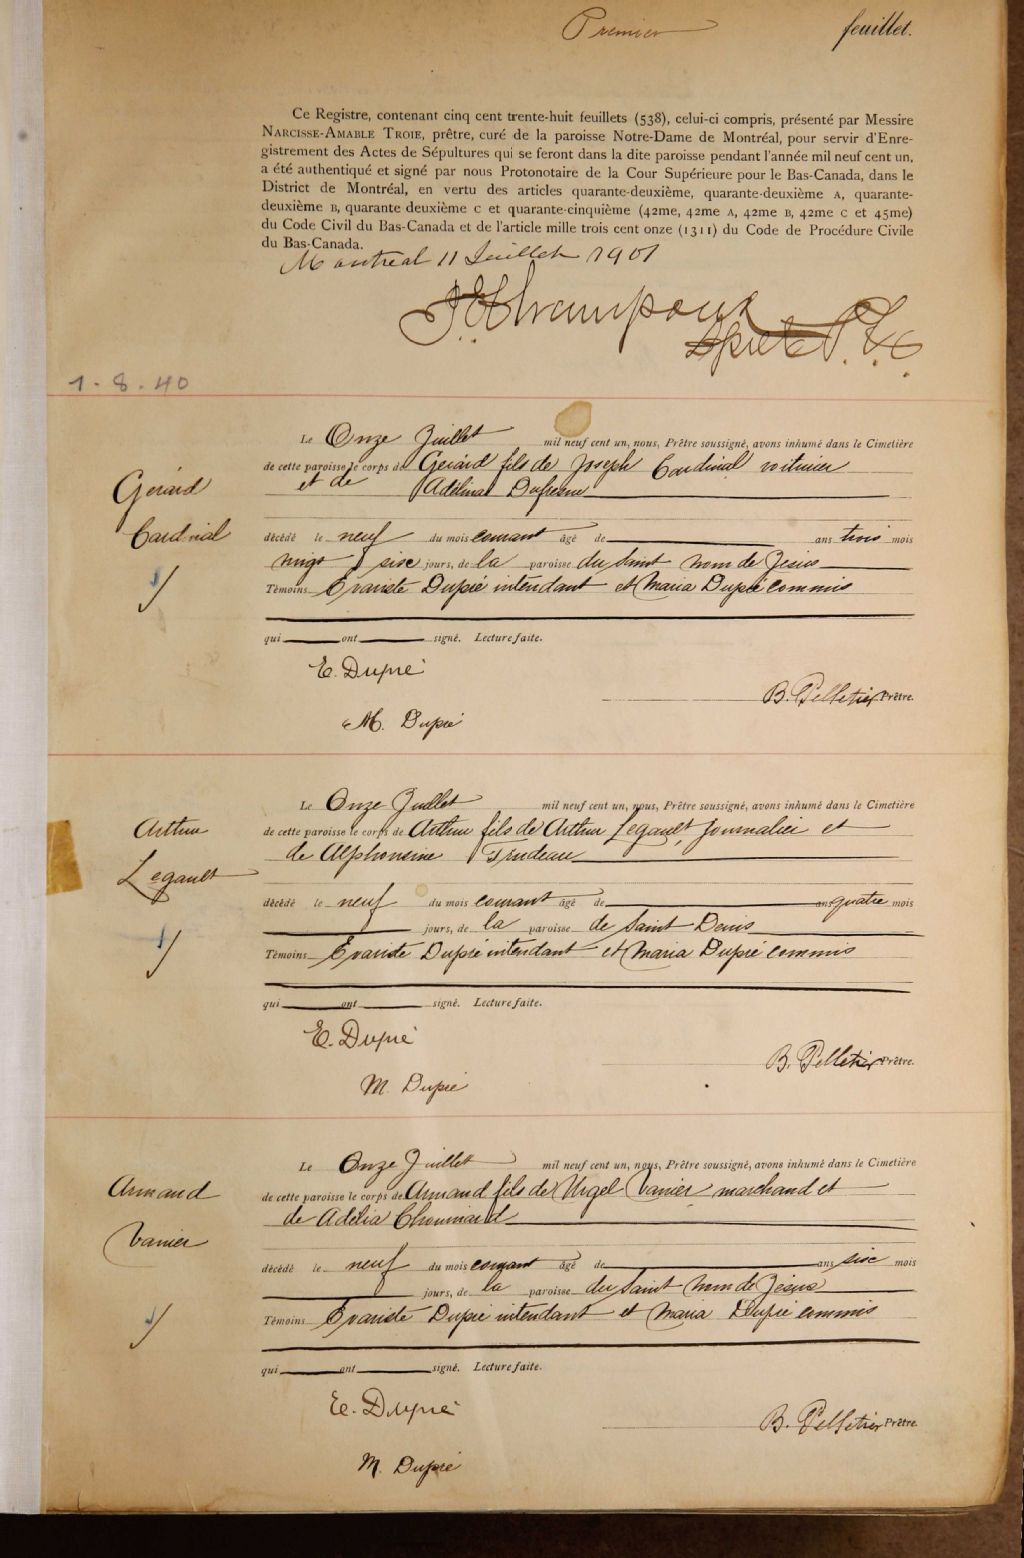 Premier feuillet.
Ce Registre, contenant cinq cent trente-huit feuillets (538), celui-ci compris, présenté par Messire
NARCISSE-AMABLE TROIE, prêtre, curé de la paroisse Notre-Dame de Montréal, pour servir d'Enre-
gistrement des Actes de Sépultures qui se feront dans la dite paroisse pendant l'année mil neuf cent un,
a été authentiqué et signé par nous Protonotaire de la Cour Supérieure pour le Bas-Canada, dans le
District de Montréal, en vertu des articles quarante-deuxième, quarante-deuxième A, quarante-
deuxième B, quarante deuxième C et quarante-cinquième (42me, 42me A, 42me B, 42me C et 45me)
du Code Civil du Bas-Canada et de l'article mille trois cent onze (1311) du Code de Procédure Civile
du Bas-Canada.
Montréal 11 Juillet 1901
1-8.40
Gérard
Cardinal
Le Onze Juillet mil neuf cent un, nous, Prêtre soussigné, avons inhumé dans le Cimetière
de cette paroisse le corps de Gérard fils de Joseph Cardinal voiturier
et de Adélina Dufresne
décédé le neuf du mois courant âgé de ans trois mois
vingt sise jours, de la paroisse du Saint nom de Jésus
Témoins Evariste Dupré intendant et Maria Dupré commis
qui ont signé. Lecture faite.
E. Dupré
B. Pelletier Prêtre.
M. Dupré
Arthur
Legault
Le Onze Juillet mil neuf cent un, nous, Prêtre soussigné, avons inhumé dans le Cimetière
de cette paroisse le corps de Arthur fils de Arthur Legault, Journalier et
de Alphonsine Trudeau
décédé le neuf du mois courant âgé de ans quatre mois
jours, de la paroisse de Saint Denis
Témoins Evariste Dupré intendant et Maria Dupré commis
qui ont signé. Lecture faite.
E. Dupré
B. Pelletier Prêtre.
M. Dupré
Armand
Vanier
Le Onze Juillet mil neuf cent un, nous, Prêtre soussigné, avons inhumé dans le Cimetière
de cette paroisse le corps de Armand fils de Urgel Vanier marchand et
de Adélia Chouinard
décédé le neuf du mois courant âgé de ans sise mois
jours, de la paroisse du Saint Nom de Jésus
Témoins Evariste Dupré intendant et Maria Dupré commis
qui ont signé. Lecture faite.
E. Dupré
B. Pelletier Prêtre.
M. Dupré